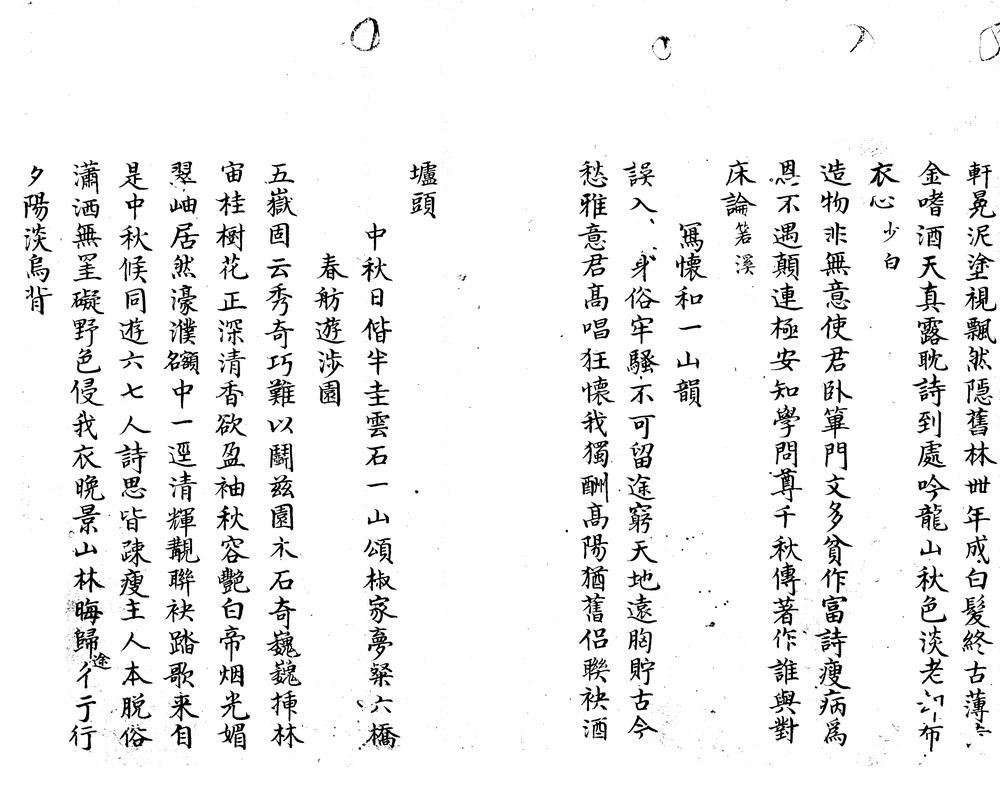 軒冕泥塗視飄然隱舊林卅年成白髮終古薄
金嗜酒天真露耽詩到處吟龍山秋色淡老布
衣心少白
造物非無意使君臥篳門文多貧作富詩瘦病爲
恩不遇顛連極安知學問尊千秋傳著作誰與對
床論箬溪
寫懷和一山韻
誤入身俗牢騷不可留途窮天地遠胸貯古今
愁雅意君高唱狂懷我獨酬高陽猶舊侶聯袂酒
壚頭
中秋日偕半圭雲石一山頌椒家夢琹六橋
春舫遊涉園
五嶽固云秀奇巧難以鬭兹園木石奇巍巍揷林
宙桂樹花正深清香欲盈袖秋容艷白帝烟光媚
翠岫居然濠濮名額中一逕清輝覯聯袂踏歌來自
是中秋候同遊六七人詩思皆疎瘦主人本脱俗
瀟洒無罣礙野色侵我衣晚景山林晦歸途彳亍行
夕陽淡烏背